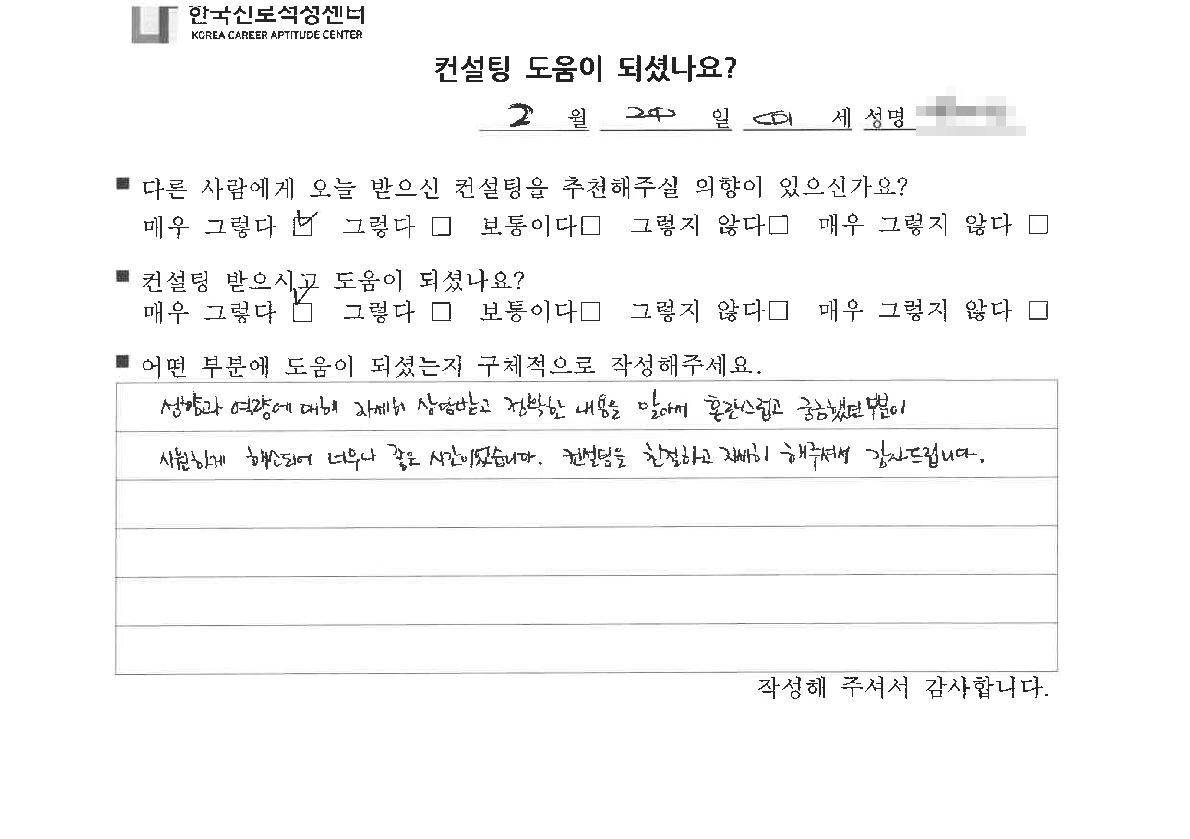 한국진로적성센터
KOREA CAREER APTITUDE CENTER
컨설팅 도움이 되셨나요?
2 월 24 일 세 성명
■ 다른 사람에게 오늘 받으신 컨설팅을 추천해주실 의향이 있으신가요?
매우 그렇다 ☑ 그렇다 □ 보통이다□ 그렇지 않다□ 매우 그렇지 않다 □
■ 컨설팅 받으시고 도움이 되셨나요?
매우 그렇다 ☑ 그렇다 □ 보통이다□ 그렇지 않다□ 매우 그렇지 않다 □
■ 어떤 부분에 도움이 되셨는지 구체적으로 작성해주세요.
성향과 역량에 대해 자세히 상담받고 정확한 내용을 알아서 혼란스럽고 궁금했던 부분이
시원하게 해소되어 너무나 좋은 시간이었습니다. 컨설팅을 친절하고 자세히 해주셔서 감사드립니다.
작성해 주셔서 감사합니다.